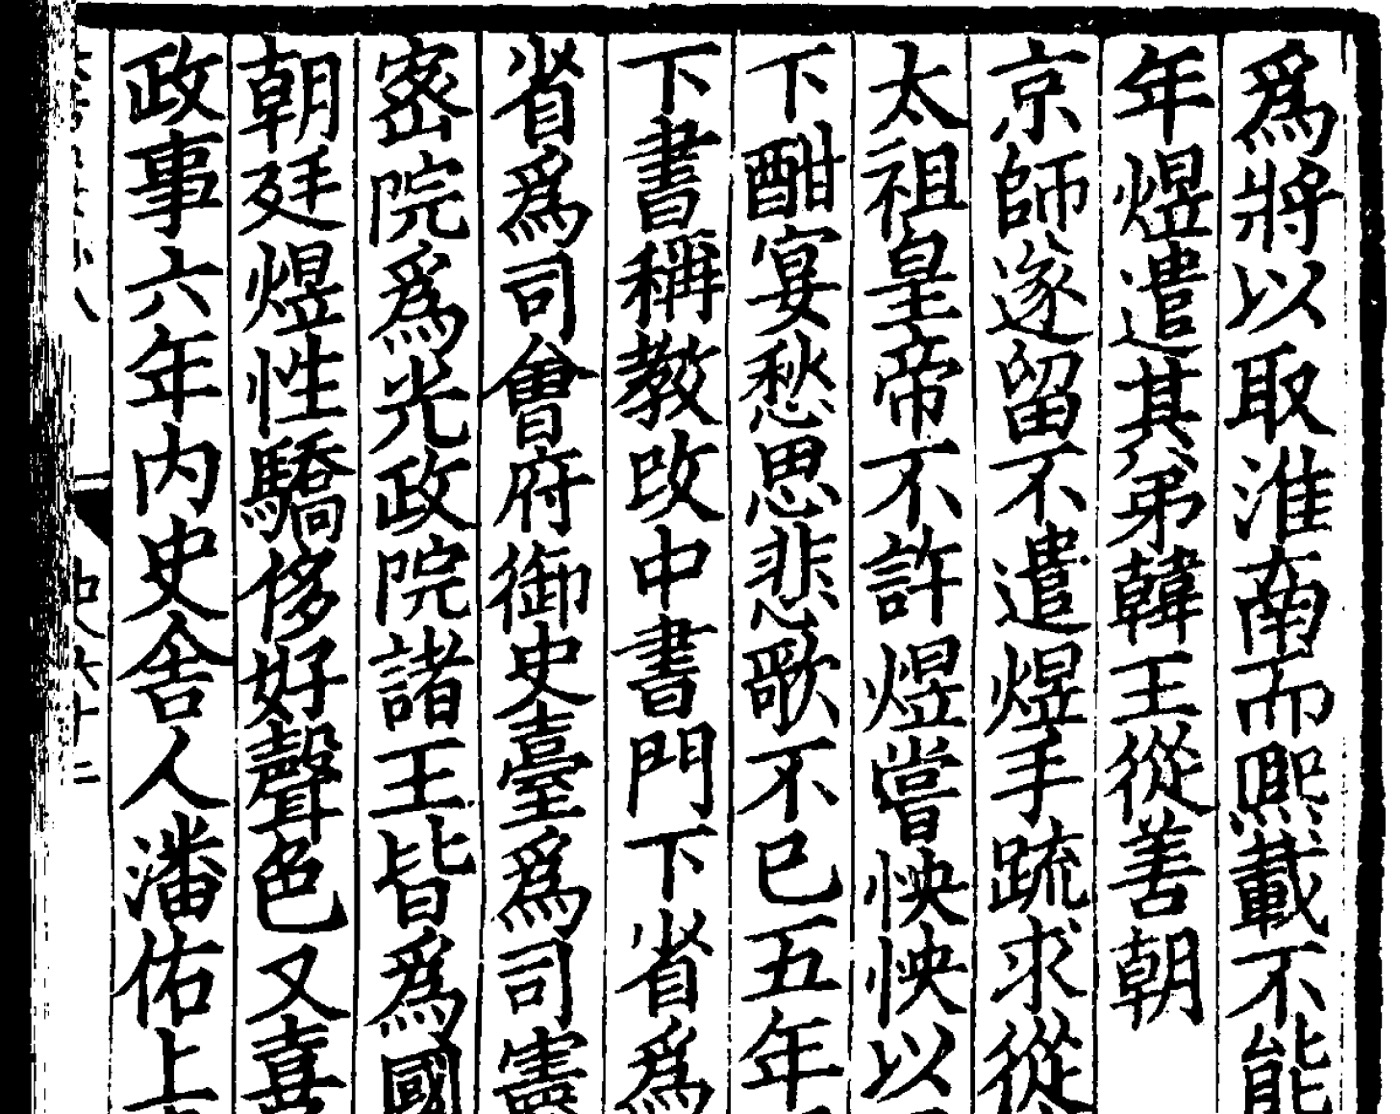 爲將以取淮南而熙載不能
年煜遣其弟韓王從善朝
京師遂留不遣煜手疏求從
太祖皇帝不許煜嘗怏怏以
下酣宴愁思悲歌不已五年
下書稱教改中書門下省爲
省爲司會府御史臺爲司憲
密院爲光政院諸王皆爲國
朝廷煜性驕侈好聲色又喜
政事六年内史舍人潘佑上